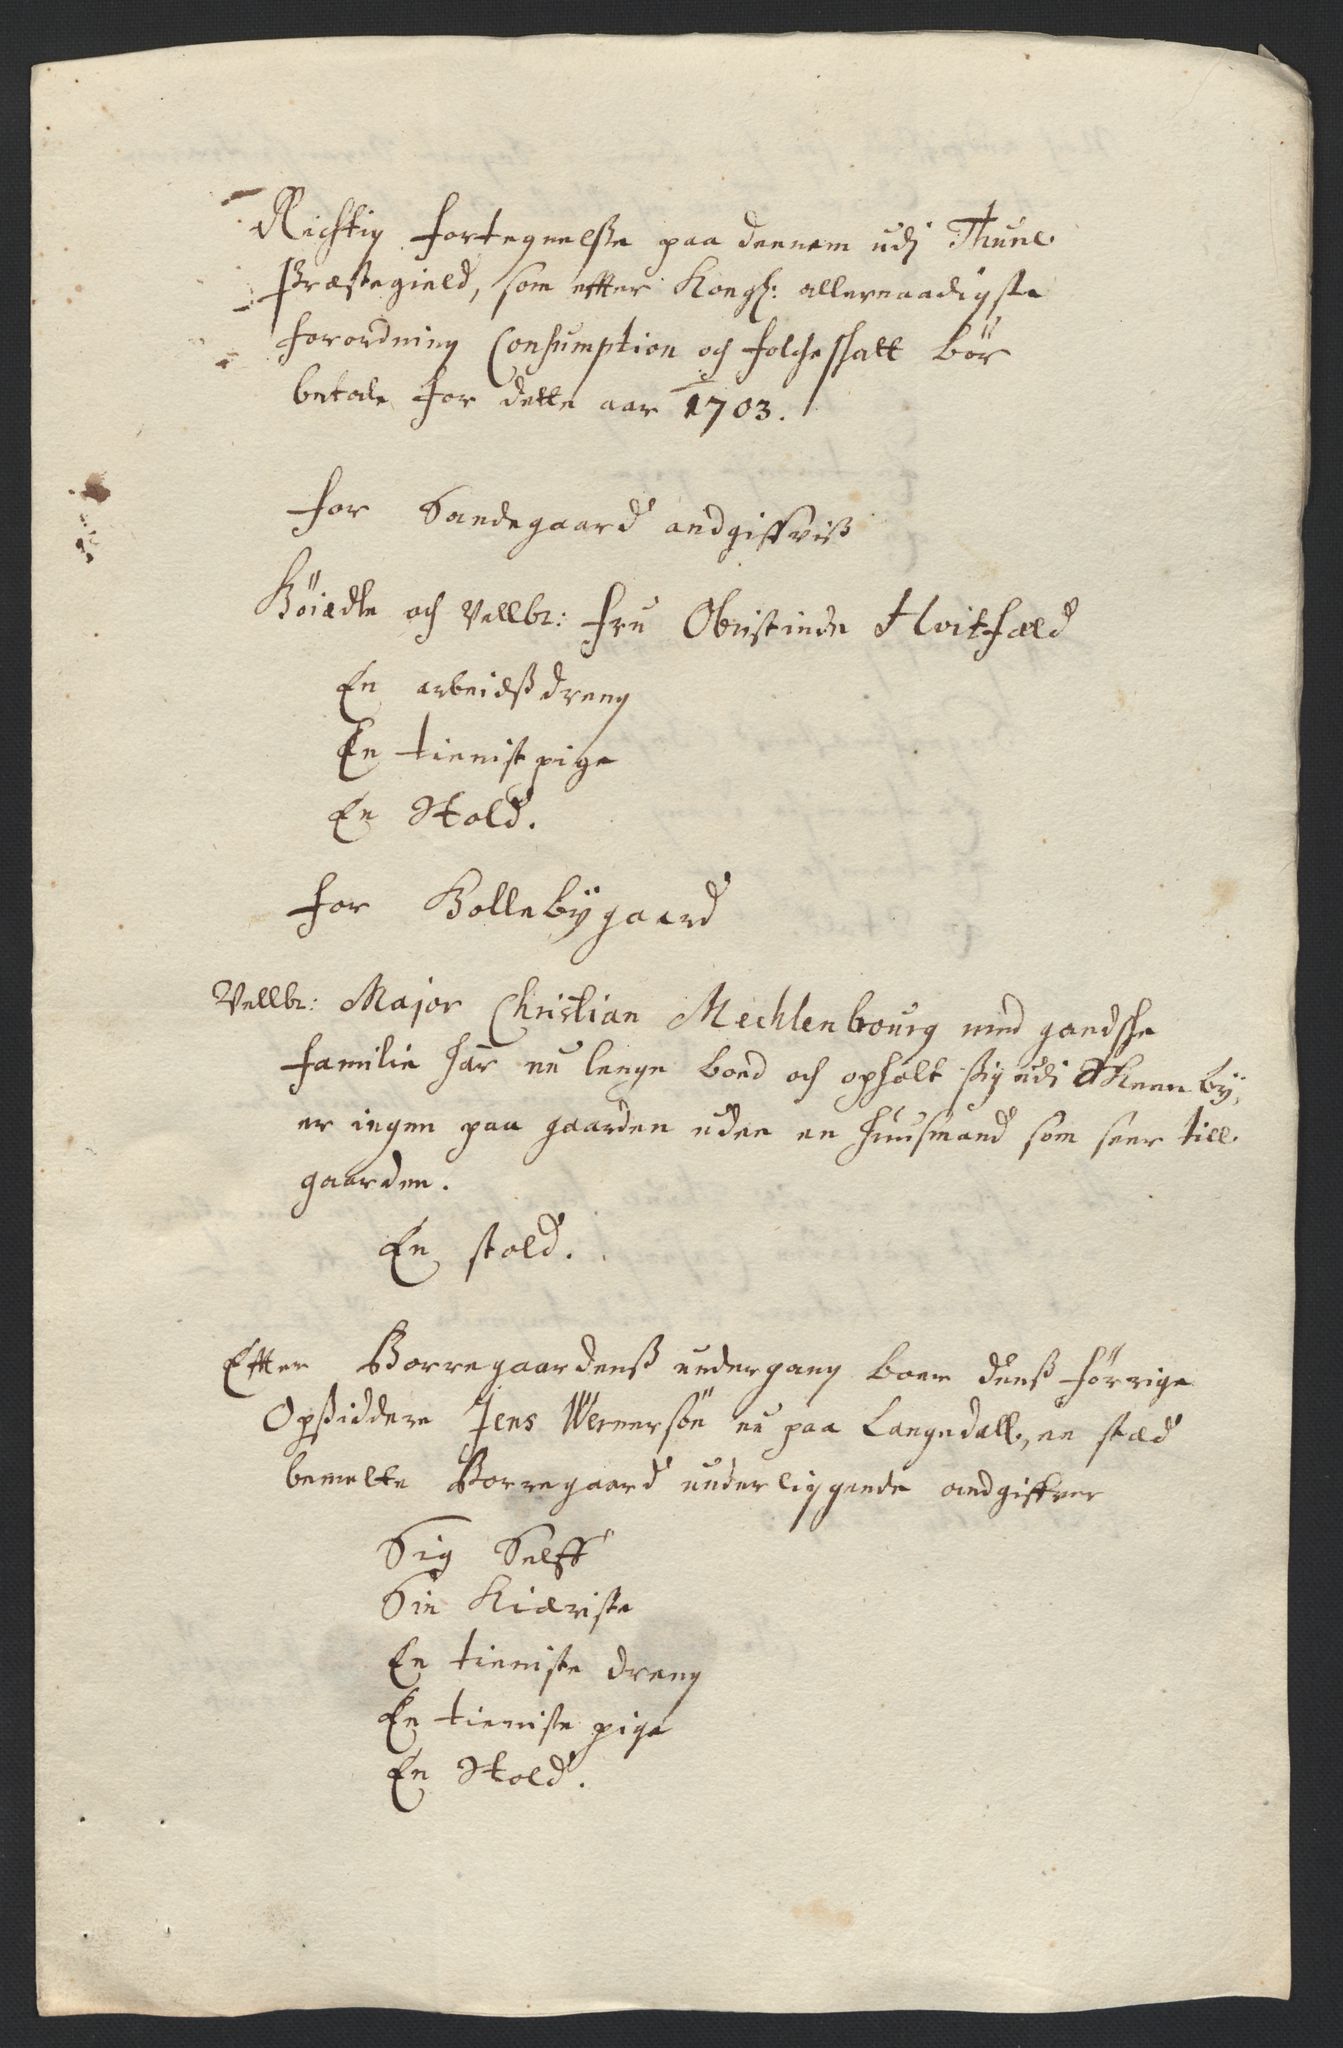 Richtig fortegnelsse paa dennem udj Thune
Præstegield, som effter Kongl: allernaadigste
forordning Consumption och folcheschatt bör
betale for dette aar 1703.
for Sandegaard andgiffviß
Höiædle och Vellbr: fru Obristinde Hvitfæld
En arbeidßdreng
En tienist pige
En Stold.
for Hollebÿgaard
Vellbr: Major Christian Mechlenbourg med gandsche
familie har nu lenge boed och opholt sig udi Skeen bÿ,
er ingen paa gaarden uden en huusmand som seer till
gaarden.
En stold.
Effter Borregaardenß undergang boer denß förrige
Opsiddere Jens Wernersön nu paa Langedall, en stæd
bemelte Borregaard underliggende andgiffver
Sig Selff
Sin Kiæriste
En tieniste dreng
En tieniste pige
En Stold.